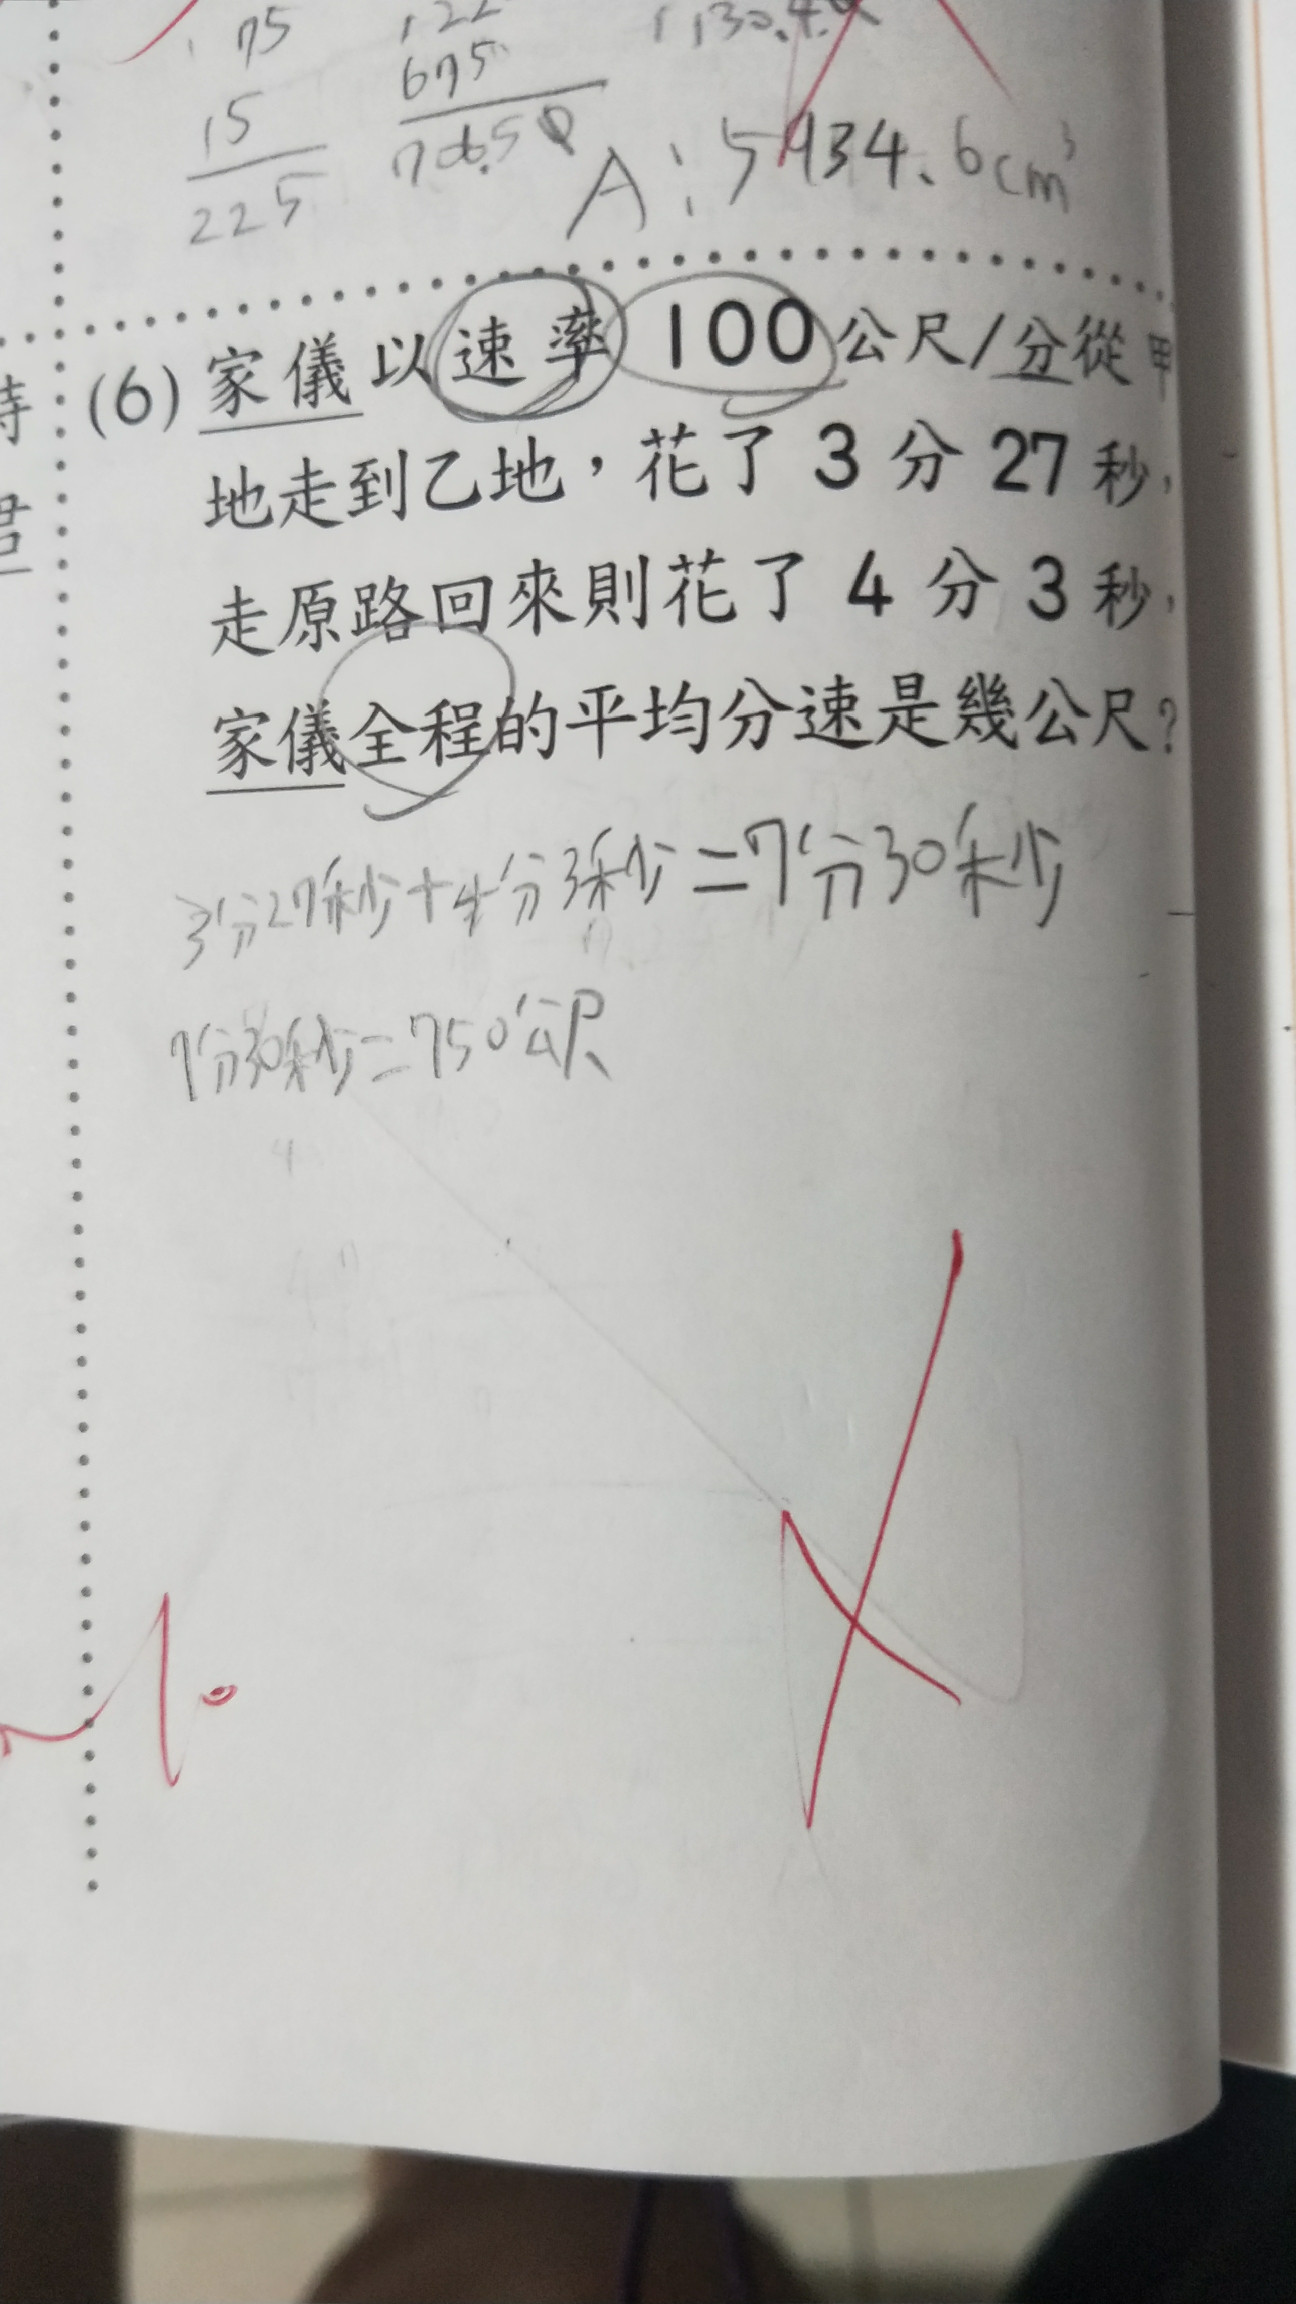 75
15
225
122
675
706.50
A:5934.6cm³
(6)家儀以速率 100公尺/分從甲
地走到乙地,花了 3 分 27 秒,
走原路回來則花了 4 分 3 秒,
家儀全程的平均分速是幾公尺?
3分27秒+4分3秒=7分30秒
7分30秒=750公尺